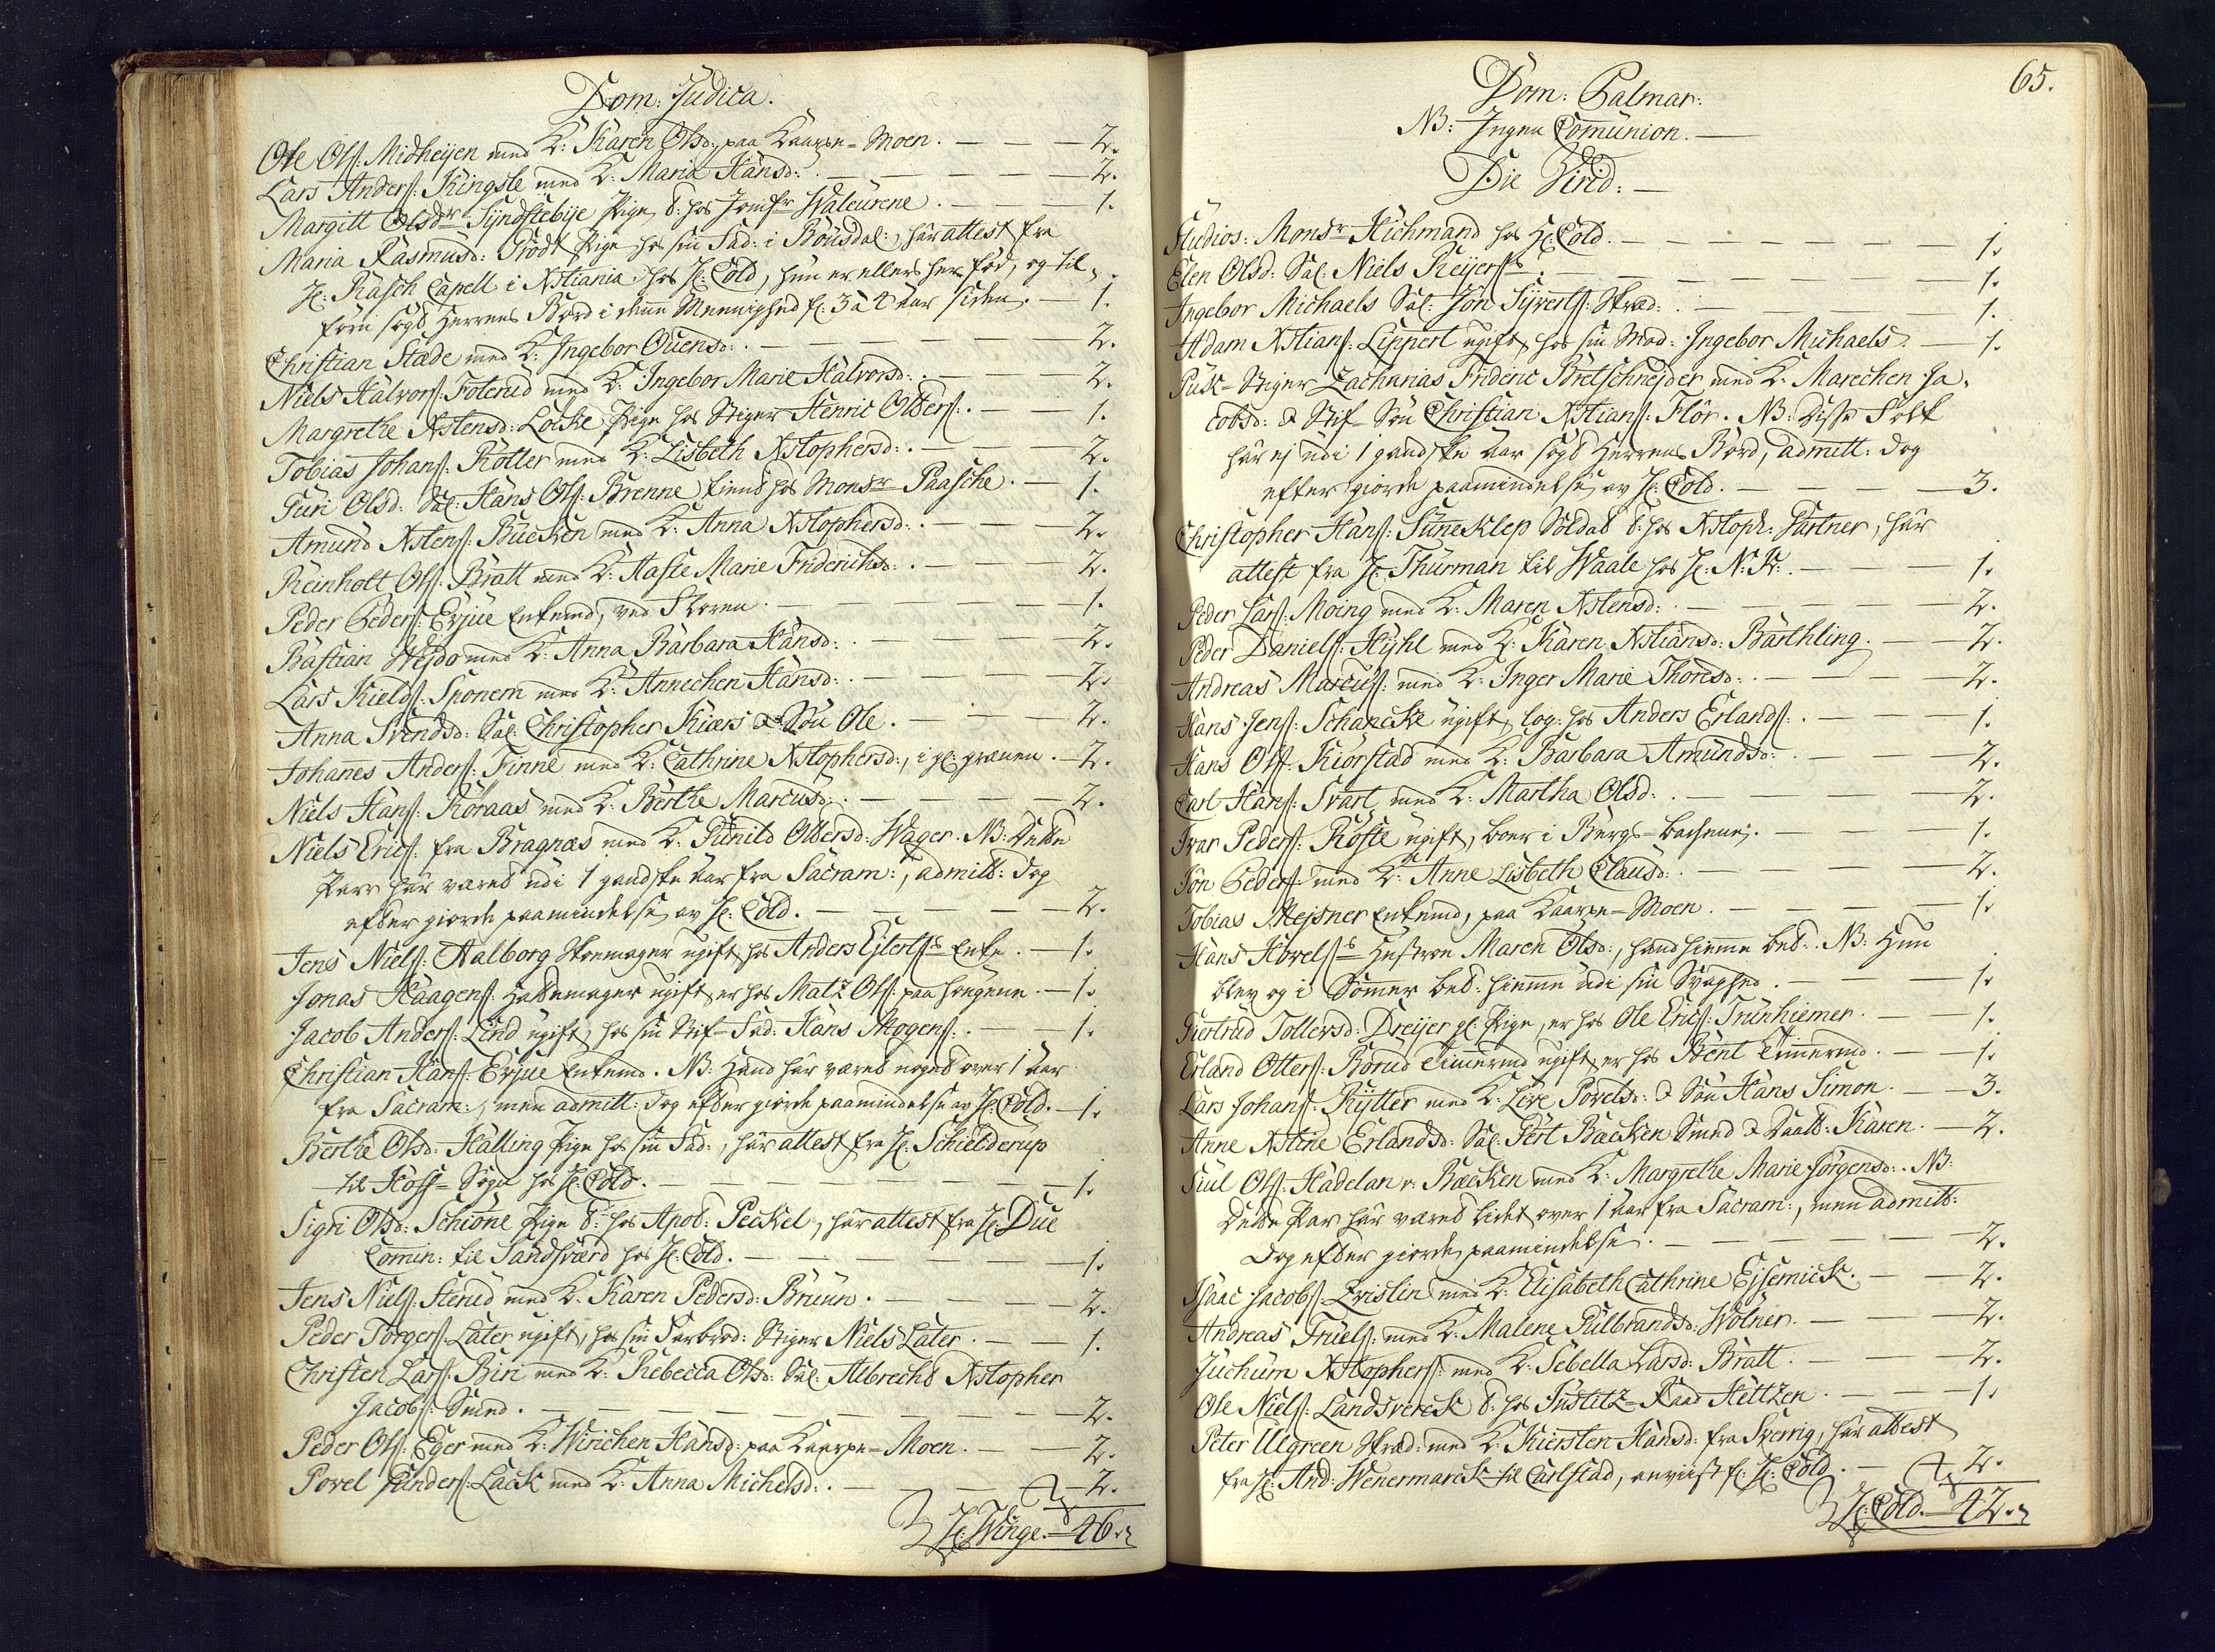 Dom: Judica.
Ole Ols: Midheijen med K: Karen Olsd:, paa Kaarpe-Moen. — — — 2.
Lars Anders: Kingsle med K: Maria Hansd: — — — — 2.
Margitt Olsdr Sÿndstebÿe Pige, t: hos Jomfr Waleurene. — — — 1.
Maria Rasmusd: Grodt Pige hos sin Fad: i Bousdal:, har attest fra
Hr: Rasch Capell i Xstiania hos Hr: Cold, hun er ellers her fød, og til-
forn søgt Herrens Bord i denne Meenighed f: 3 a 4 Aar siden. — 1.
Christian Stæde med K: Ingebor Ouensd: — — — — 2.
Niels Halvors: Foterud med K: Ingebor Marie Halvorsd: — — — 2.
Margrethe Xstensd: Locke Pige hos Stiger Henric Olters: — — 1.
Tobias Johans: Rotter med K: Lisbeth Xstophersd: — — — 2.
Guri Olsd: Sal: Hans Ols: Brenne tiener hos Monsr Paasche. — 1.
Amund Xstens: Buecken med K: Anna Xstophersd: — — — 2.
Reinholt Ols: Bratt med K: Aaste Marie Friderichsd: — — 2.
Peder Peders: Erjue Enkemd, ved — — — — 1.
Bastian Wejdo med K: Anna Barbara Hansd: — — — 2.
Lars Kields: Sponem med K: Annechen Hansd: — — — 2.
Anna Svendsd: Sal: Christopher Kiærs & Søn Ole. — — — 2.
Johanes Anders: Finne med K: Cathrine Xstophersd:, i gl: graven. — 2.
Niels Hans: Koraas med K: Berthe Marcusd: — — — — 2.
Niels Erics: fra Bragnæs med K: Gunild Oltersd: Wager. NB: Dette
Parr har været udi 1 gandske Aar fra Sacram:, admitt: dog
efter giorde paamindelse, av Hr: Cold. — — — — — 2.
Jens Niels: Aalborg Skoemager ugift, hos Anders Ejlertss Enke. — 1.
Jonas Haagens: Hattemager ugift, er hos Matz Ols: paa — 1.
Jacob Anders: Lind ugift, hos sin Stif-Fad: Hans Mogens: — 1.
Christian Hans: Erjue Enkemd. NB: Hand har været noget over 1 Aar
fra Sacram:, men admitt: dog efter giorde paamindelse av Hr: Cold. — 1.
Berthe Olsd: Halling Pige hos sin Fad:, har attest fra Hr: Schielderup
til Hoff-Sogn hos Hr: Cold. — — — — — 1.
Sigri Olsd: Schiønne Pige t: hos Apot: Peckel, har attest fra Hr: Due
Comin: til Sandsværd hos Hr: Cold. — — — — — 1.
Jens Niels: Sterud med K: Karen Pedersd: Bruun. — — — 2.
Peder Torgers: Later ugift, hos sin Farbrod: Stiger Niels Later. — — 1.
Christen Lars: Biri med K: Rebecca Olsd: Sal: Albrecht Xstopher
Jacobs: Smed. — — — — — — 2.
Peder Ols: Eger med K: Wirichen Hansd: paa Kaarpe-Moen. — — 2.
Povel Gunders: Lack med K: Anna Michelsd: — — — 2.
Hr: Winge. — 46.
65.
Dom: Palmar:
NB: Ingen Comunion. —
Die Virid: —
Studios: Monsr Hichmand hos Hr: Cold. — — — — — 1.
Elen Olsd: Sal: Niels Reijerss. — — — — — 1.
Ingebor Michaels Sal: Jon Sÿverts: Skræd: — — — — 1.
Adam Xstians: Lippert ugift, hos sin Mod: Ingebor Michaels. — 1.
Puk-Stiger Zacharias Frideric Bretschneijder med K: Marechen Ja-
cobsd: & Stif-Søn Christian Xstians: Flor. NB: Disse Folk
har ej udi 1 gandske Aar søgt Herrens Bord, admitt: dog
efter giorde paamindelse, av Hr: Cold. — — — 3.
Christopher Hans: Suneklep Soldat t: hos Xstoph: Gartner, har
attest fra Hr: Thurman til Waale hos Hr: N: K: — — — 1.
Peder Lars: Moing med K: Maren Xstensd: — — — 2.
Peder Daniels: Hÿhl med K: Karen Xstiansd: Barthling. — 2.
Andreas Marcuss: med K: Inger Marie Thoresd: — — — 2.
Hans Jens: Schancke ugift, log: hos Anders Erlands: — — 1.
Hans Ols: Kiørstad med K: Barbara Amundsd: — — 2.
Carl Hans: Svart med K: Martha Olsd: — — — 2.
Ivar Peders: Roste ugift, boer i Bergs- — — — 1.
Jon Peders: med K: Anne Lisbeth Clausd: — — — 2.
Tobias Mejsner Enkemd, paa Kaarpe-Moen. — — — 1.
Hans Hovelss Hustroe Maren Olsd:, hand hieme bet:. NB: Hun
blev og i Sommer bet: hiemme udi sin Svaghed. — — — 1.
Giertrud Tollevsd: Dreijer gl: Pige, er hos Ole Erics: Trunhiemer. — 1.
Erland Otters: Borud Timermd ugift, er hos Bent Timermd. — 1.
Lars Johans: Rÿtter med K: Live Povelsd: & Søn Hans Simon. — 3.
Anne Xstine Erlandsd: Sal: Pert Backen Smed & Daatt: Karen. — 2.
Siul Ols: Hadelan v: Backen med K: Margrethe Marie Jørgensd:. NB:
Dette Par har været lidet over 1 Aar fra Sacram:, men admitt:
dog efter giorde paamindelse. — — — — — 2.
Isaac Jacobs: Qvislin med K: Elisabeth Cathrine Ejsemick. — — 2.
Andreas Truels: med K: Malene Gulbrandsd: Wolner. — — — 2.
Juchum Xstophers: med K: Sebella Larsd: Bratt. — — — 2.
Ole Niels: Landsverck t: hos Justitz-Raad Heltzen. — — — 1.
Peter Ulgreen Skræd: med K: Kiersten Hansd: fra Sverrig, har attest
fra Hr: And: Wenermarck til Carlstad, anviist f: Hr: Cold. — 2.
Hr: Cold. — 42.